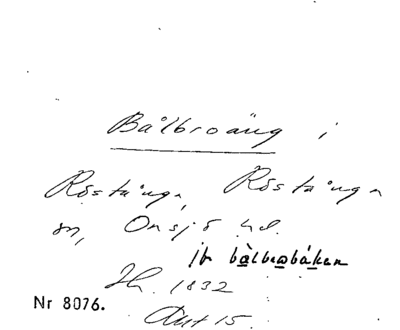 Bålbroäng i
Röstånga, Röstånga
sn, Onsjö hd.
jr bålbrobäken
1832
Nr 8076.
Akt 15.